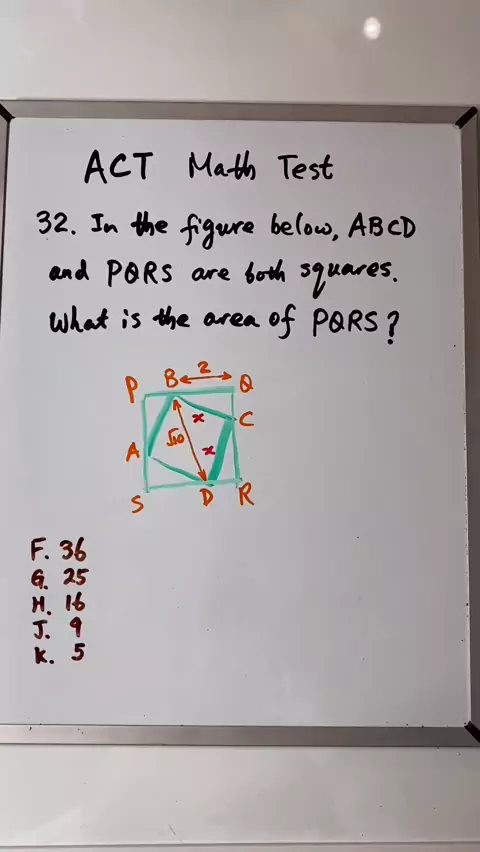 ACT Math Test
32. In the figure below, ABCD
and PQRS are both squares.
What is the area of PQRS?
P B 2 Q
x C
√10
A x
S D R
F. 36
G. 25
H. 16
J. 9
K. 5